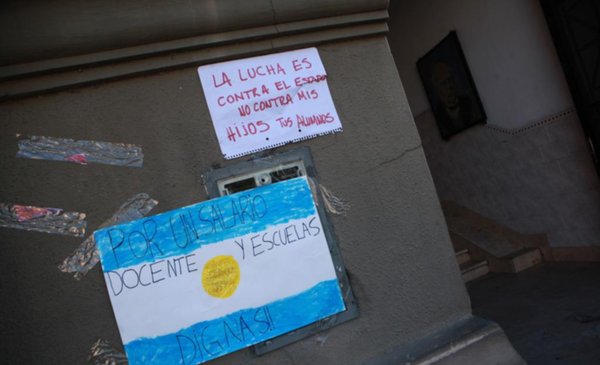 LA LUCHA ES
CONTRA EL ESTADO
NO CONTRA MIS
HIJOS TUS ALUMNOS
POR UN SALARIO
DOCENTE Y ESCUELAS
DIGNAS!!